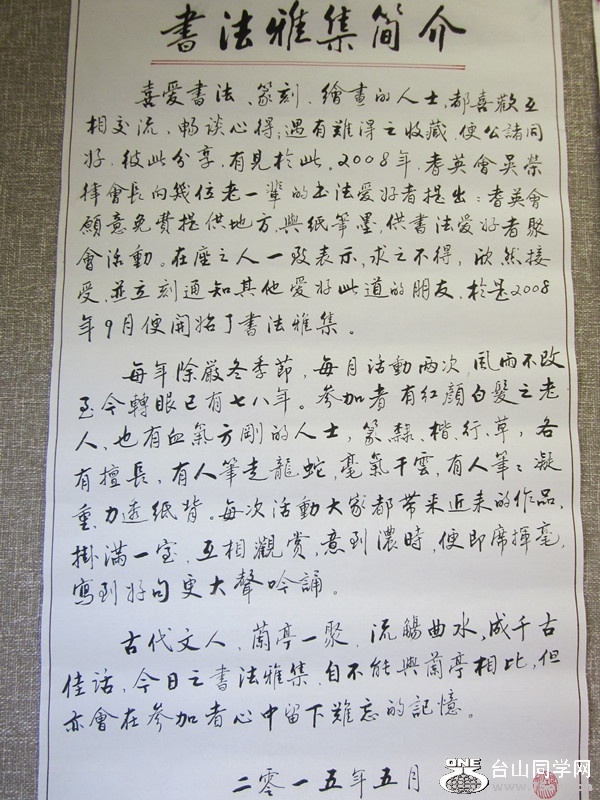 書法雅集简介
喜爱書法、篆刻、繪畫的人士,都喜歡互
相交流,暢谈心得;遇有難得之收藏,便公諸同
好,彼此分享,有見於此,2008年,耆英會吴榮
擇會長向幾位老一輩的书法爱好者提出:耆英會
願意免費提供地方,與紙筆墨,供書法爱好者聚
會活動。在座之人一致表示,求之不得,欣然接
受,並立刻通知其他爱好此道的朋友,於是2008
年9月便開始了書法雅集。
每年除嚴冬季節,每月活動兩次,風雨不改
至今轉眼已有七八年。参加者有红顔白髮之老
人,也有血氣方剛的人士,篆、隸、楷、行、草,各
有擅長,有人筆走龍蛇,毫氣干雲,有人筆々凝
重,力透紙背。每次活動大家都带来近来的作品,
掛滿一室,互相觀赏,意到濃時,便即席揮毫,
寫到好句更大聲吟誦。
古代文人,蘭亭一聚,流觴曲水,成千古
佳話,今日之書法雅集,自不能與蘭亭相比,但
亦會在参加者心中留下難忘的記憶。
二零一五年五月
ONE
台山同学网